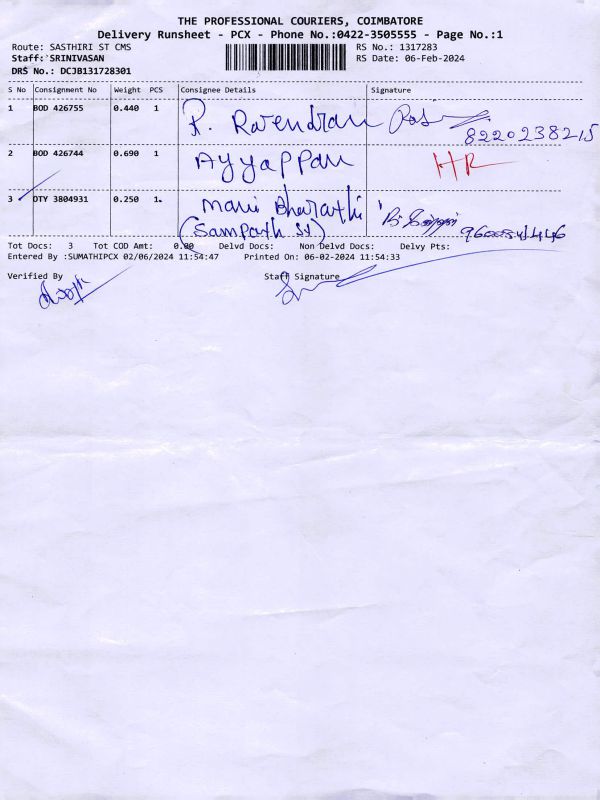 THE PROFESSIONAL COURIERS, COIMBATORE
Delivery Runsheet - PCX - Phone No.:0422-3505555 - Page No.:1
Route: SASTHIRI ST CMS RS No.: 1317283
Staff: SRINIVASAN RS Date: 06-Feb-2024
DRS No.: DCJB131728301
S No Consignment No Weight PCS Consignee Details Signature
1 BOD 426755 0.440 1 R. Ravendran 8220238215
2 BOD 426744 0.690 1 Ayyappan HR
3 DTY 3804931 0.250 1 Mani Bharathi
(Sampath St)
Tot Docs: 3 Tot COD Amt: 0.00 Delvd Docs: Non Delvd Docs: Delvy Pts:
Entered By :SUMATHIPCX 02/06/2024 11:54:47 Printed On: 06-02-2024 11:54:33
Verified By Staff Signature